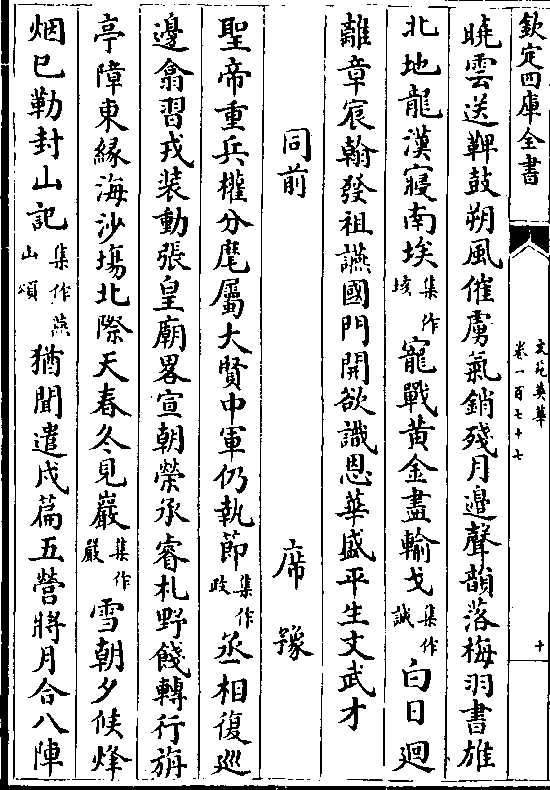 欽定四庫全書
文苑英華
卷一百七十七
十
曉雲送鞞鼓朔風催虜氣銷殘月邉聲韻落梅羽書雄
北地龍漢寢南埃集作垓寵戰黄金盡輸戈集作誠白日廻
離章宸翰發祖讌國門開欲識恩華盛平生文武才
同前
席豫
聖帝重兵權分麾屬大賢中軍仍執節集作政丞相復巡
邊翕習戎装動張皇廟畧宣朝榮承睿札野餞轉行旃
亭障東縁海沙塲北際天春冬見巖集作嚴雪朝夕候烽
烟已勒封山記集作燕山頌猶聞遣戍篇五營將月合八陣